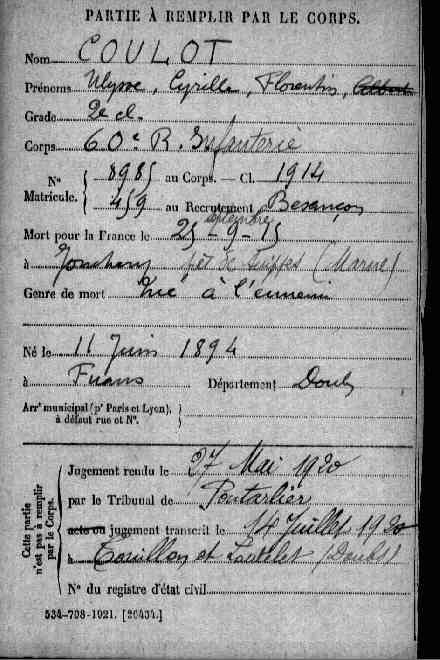 PARTIE À REMPLIR PAR LE CORPS.
Nom COULOT
Prénoms Ulysse, Cyrille, Florentin, Albert
Grade 2e cl.
Corps 60e R. Infanterie
N° Matricule. { 8985 au Corps. — Cl. 1914
459 au Recrutement Besançon
septembre
Mort pour la France le 25-9-15
à Jonchery près de Suippes (Marne)
Genre de mort Tué à l'ennemi
Né le 11 Juin 1894
à Fuans Département Doubs
Arrt municipal (pr Paris et Lyon), à défaut rue et N°. }
Cette partie n'est pas à remplir par le Corps.
Jugement rendu le 27 Mai 1920
par le Tribunal de Pontarlier
acte ou jugement transcrit le 14 Juillet 1920
à et (Doubs)
N° du registre d'état civil
534-708-1921. [26434.]